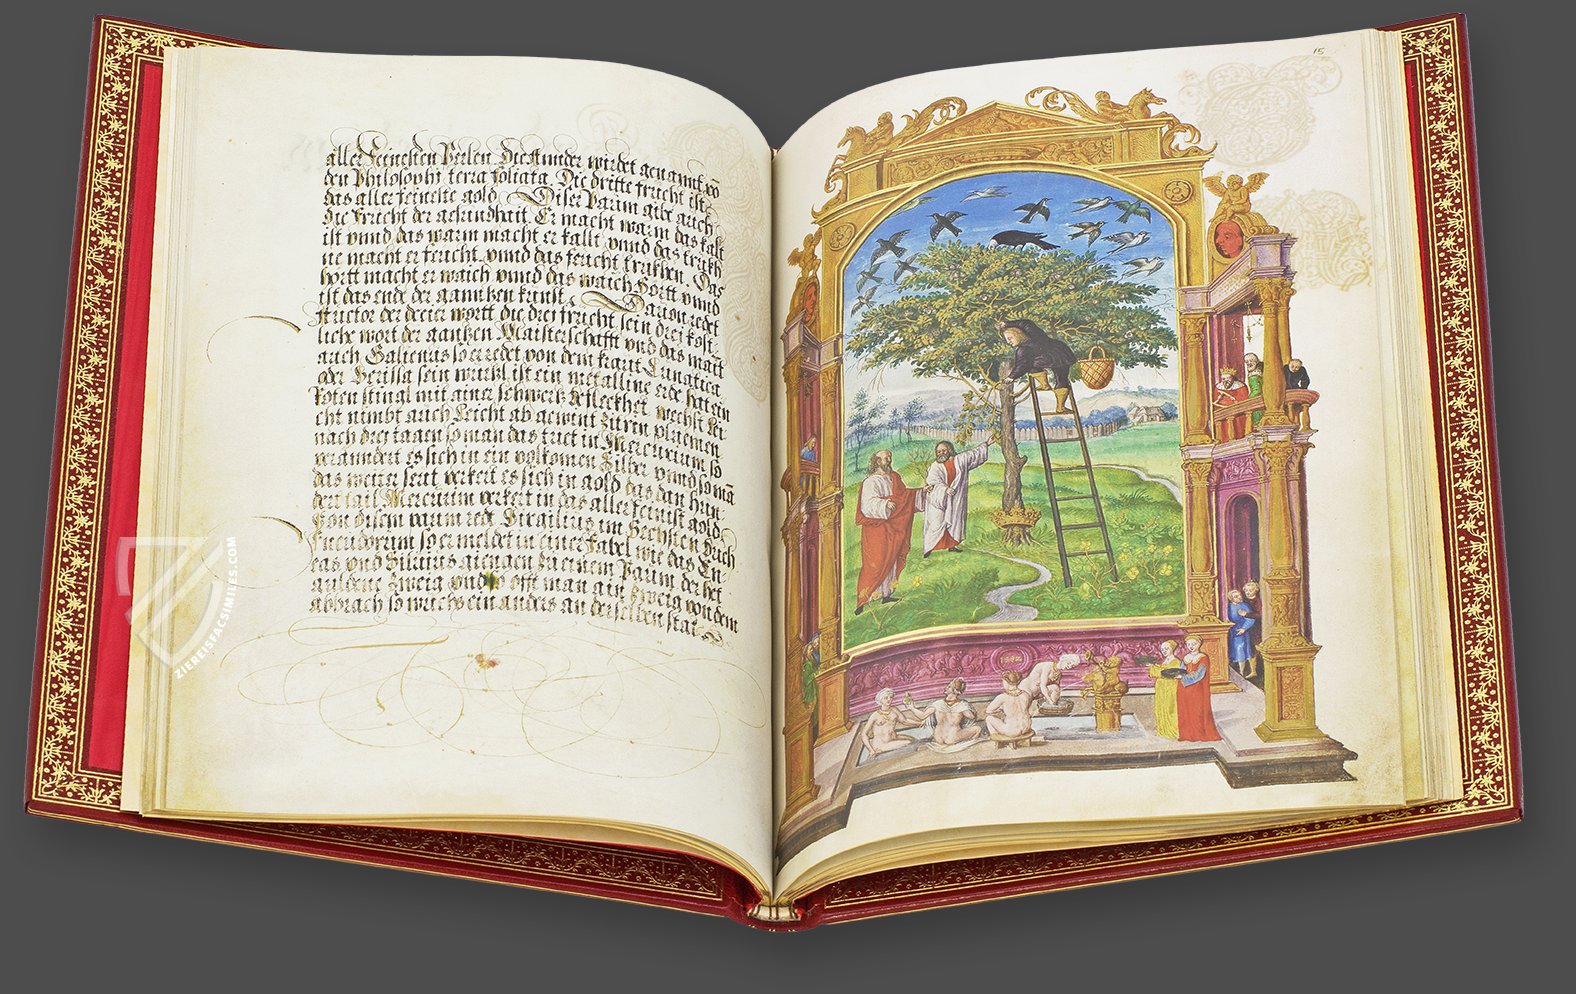 aller feinesten Perlen. Die ander wirdet genannt vō
den Philosophi terra foliata. Die dritte frucht ist
das aller feineste gold. Diser Baum gibt auch
die frucht der gesundhait. Er macht warm das kalt
ist vnnd das warm macht er kallt vnnd das truckh
ne macht er feucht vnnd das feucht truckhen. Das
hertt macht er waich vnnd das waich hertt vnnd
ist das ende der gantzen kunst. Dauon redet
der dreier wortt die drei frucht sein drej kost=
liche wort der gantzen Maisterschafft vnd das maint
auch Galienus so er redet von dem kraut Lunatica
oder Berissa sein wurtzl ist ein metalline erde hat ein
roten stingl mit ainer schwertz befleckhet wechst
cht nimbt auch leicht ab gewint Zitrin pluemen
nach drei tagen so man das tuet in Mercurium so
veranndert es sich in ein volkomen Silber vnnd so mā
das weiter seut verkert es sich in gold das dan hun
dert tail Mercurium verkert in das aller feinist gold
Von disem baum redt Virgilius im Sechsten buch
Eneidorum so er meldet in einer Fabel wie das En=
eas vnd Siluius giengen zu einem Baum der het
guldene Zweig vnd so offt man ain zweig von dem
abbrach so wuchs ein anders an derselben stat
15
1582
ZIEREISFACSIMILES.COM